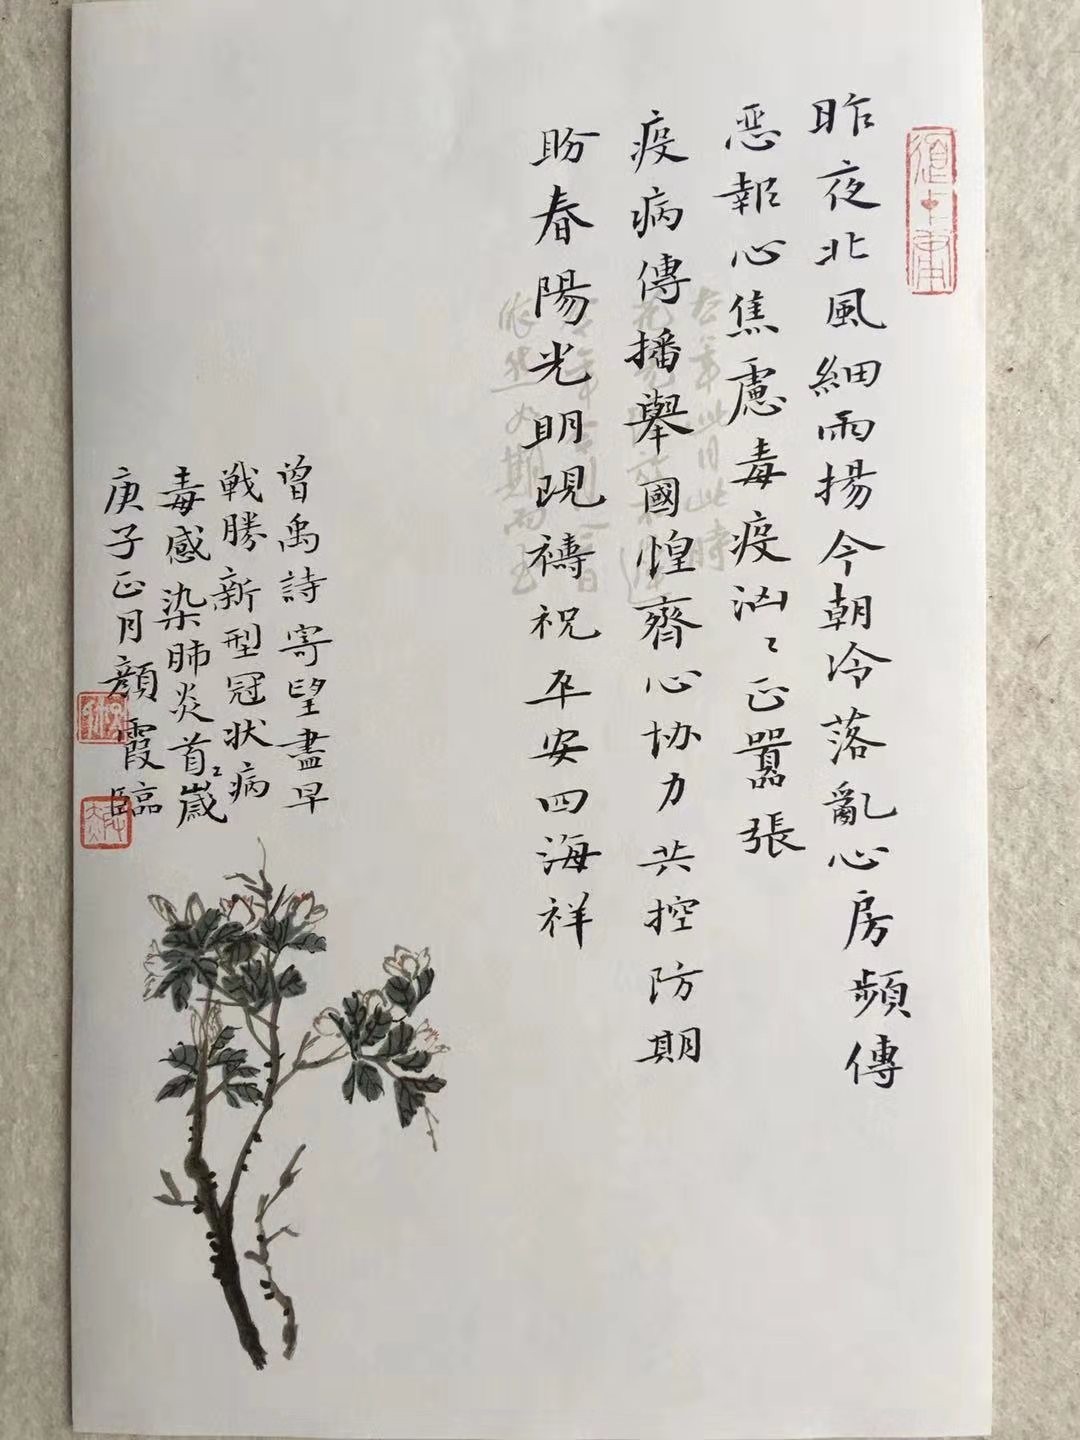 昨夜北風細雨揚今朝冷落亂心房頻傳
惡報心焦慮毒疫洶〻正囂張
疫病傳播舉國惶齊心協力共控防期
盼春陽光明現禱祝平安四海祥
曾禹詩寄望盡早
戰勝新型冠狀病
毒感染肺炎首〻歲
庚子正月顏霞臨